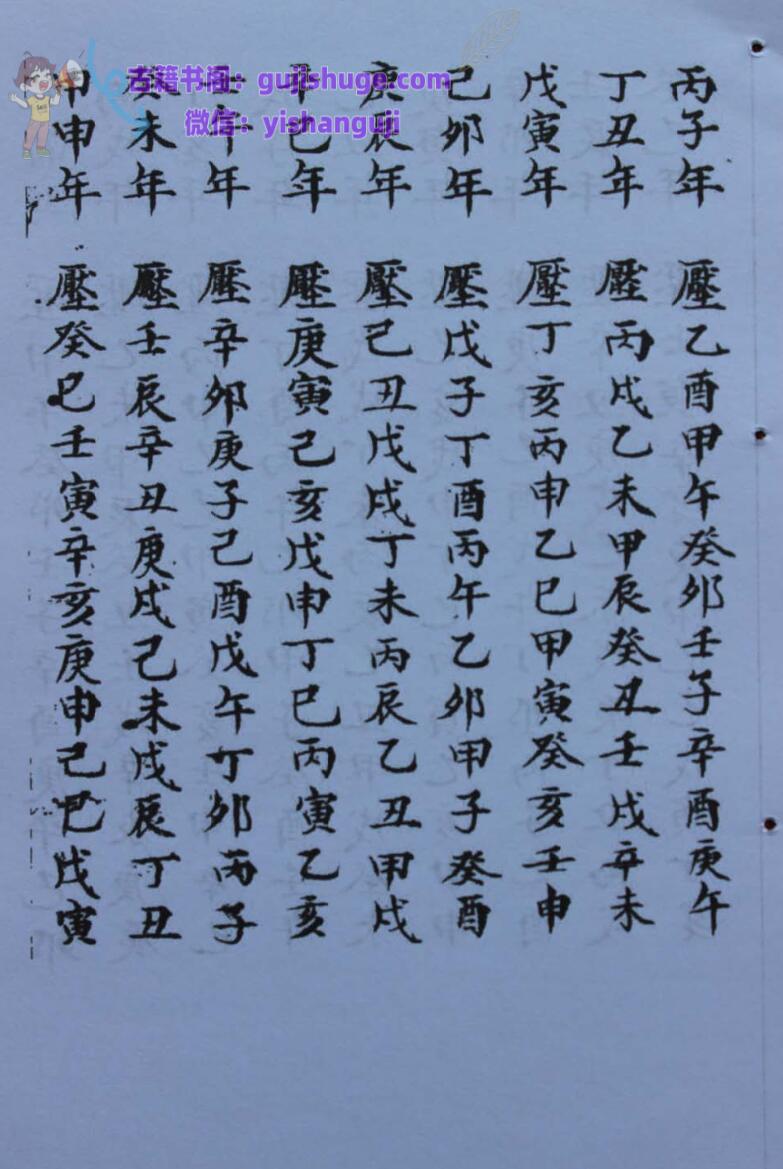 丙子年 壓乙酉甲午癸卯壬子辛酉庚午
丁丑年 壓丙戌乙未甲辰癸丑壬戌辛未
戊寅年 壓丁亥丙申乙巳甲寅癸亥壬申
己卯年 壓戊子丁酉丙午乙卯甲子癸酉
庚辰年 壓己丑戊戌丁未丙辰乙丑甲戌
辛巳年 壓庚寅己亥戊申丁巳丙寅乙亥
壬午年 壓辛卯庚子己酉戊午丁卯丙子
癸未年 壓壬辰辛丑庚戌己未戊辰丁丑
甲申年 壓癸巳壬寅辛亥庚申己巳戊寅
古籍书阁：gujishuge.com
微信：yishanguji